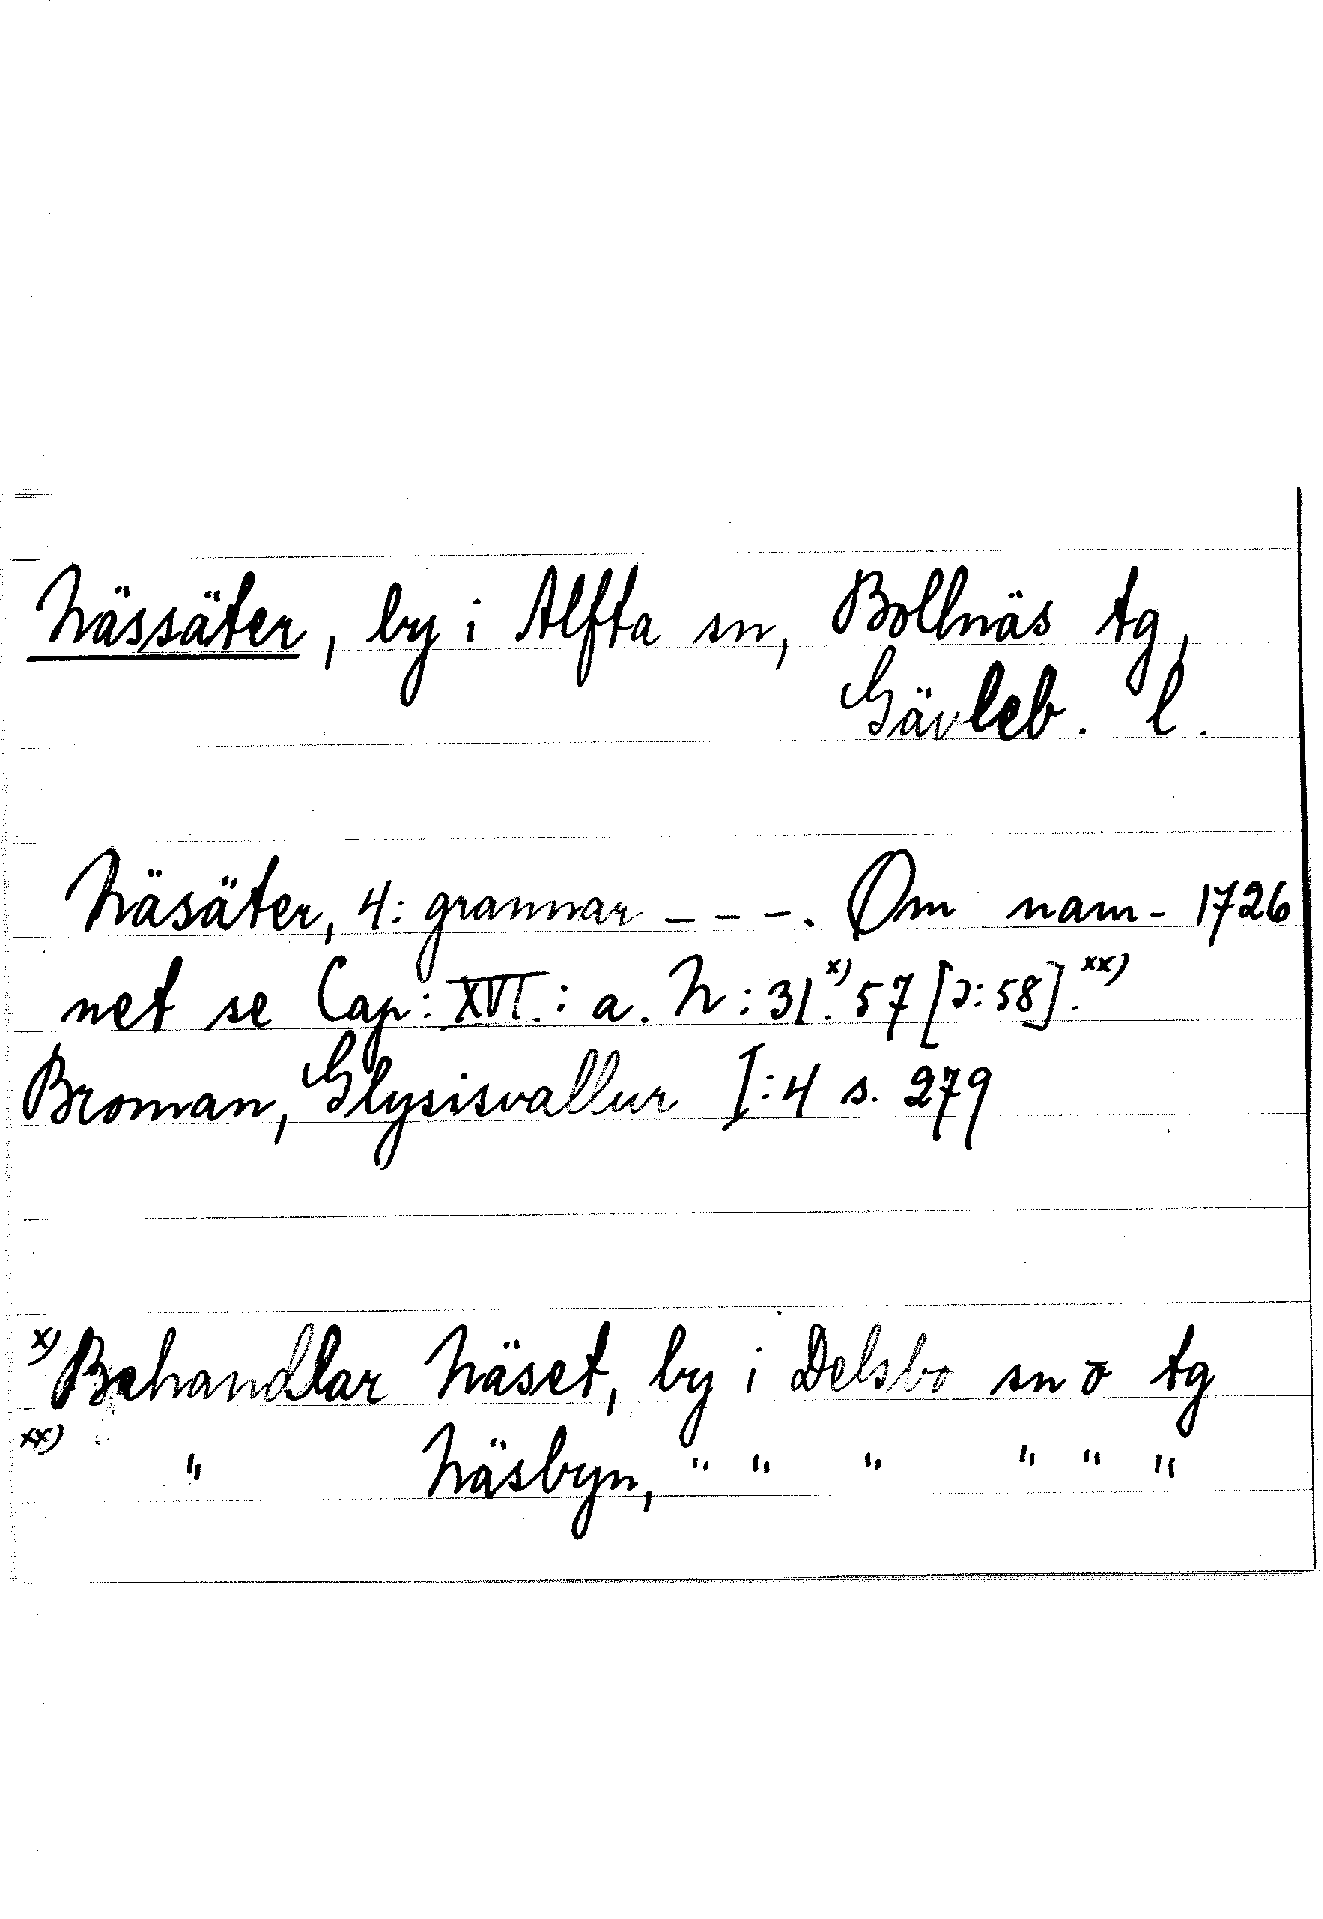 Nässäter, by i Alfta sn, Bollnäs tg,
Gävleb. l.
Näsäter, 4: grannar – – –. Om nam- 1726
net se Cap: XVI.: a. N: 31.x) 57 [ɔ: 58].xx)
Broman, Glysisvallur I:4 s. 279
x) Behandlar Näset, by i Delsbo sn o tg
xx) " Näsbyn, " " " " " "